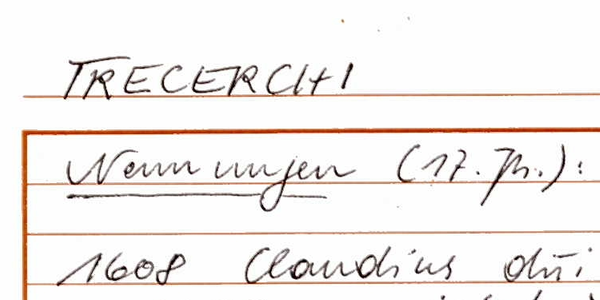 TRECERCHI
Nennungen (17. Jh.):
1608 Claudius dñi